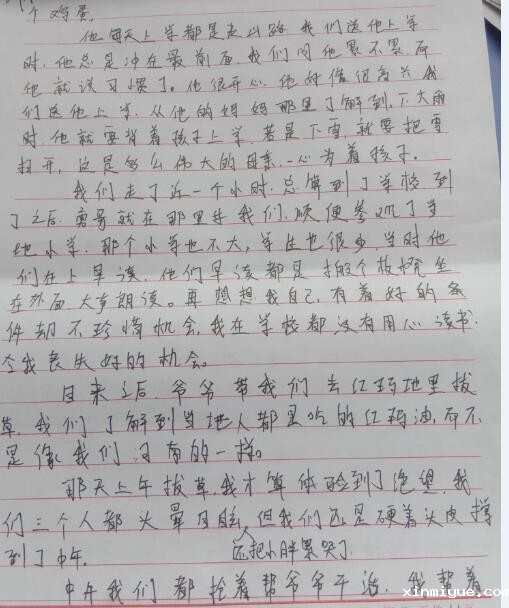 个鸡蛋。
他每天上学都是走山路,我们送他上学
时,他总是冲在最前面,我们问他累不累,而
他就说习惯了。他很开心,他好像很高兴我
们送他上学,从他的妈妈那里了解到,下大雨
时,他就要背着孩子上学,若是下雪,就要把雪
扫开,这是多么伟大的母亲,一心为着孩子。
我们走了近一个小时,总算到了学校,到
了之后,勇哥就在那里等我们,顺便参观了当
地小学,那个小学也不大,学生也很少,当时他
们在上早读,他们早读都是搬个板凳坐
在外面大声朗读。再想想我自己,有着好的条
件却不珍惜机会,我在学校都没有用心读书,
令我丧失好的机会。
回来之后,爷爷带我们去红玛地里拔
草,我们了解到当地人都是吃的红玛油,而不
是像我们河南的一样。
那天上午拔草,我才算体验到了绝望,我
们三个人都头晕目眩,但我们还是硬着头皮撑
到了中午。 还把小胖累哭了
中午我们都抢着帮爷爷干活,我帮着
xinmiyue.com